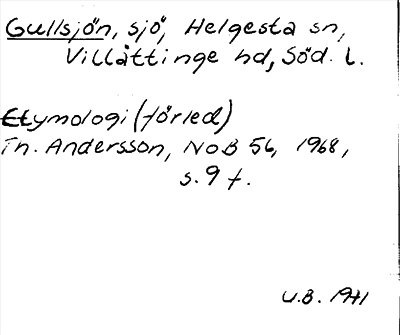 Gullsjön, sjö, Helgesta sn,
Villåttinge hd, Söd. l.
Etymologi (förled)
Th. Andersson, NoB 56, 1968,
s. 9 f.
U.B. 1971